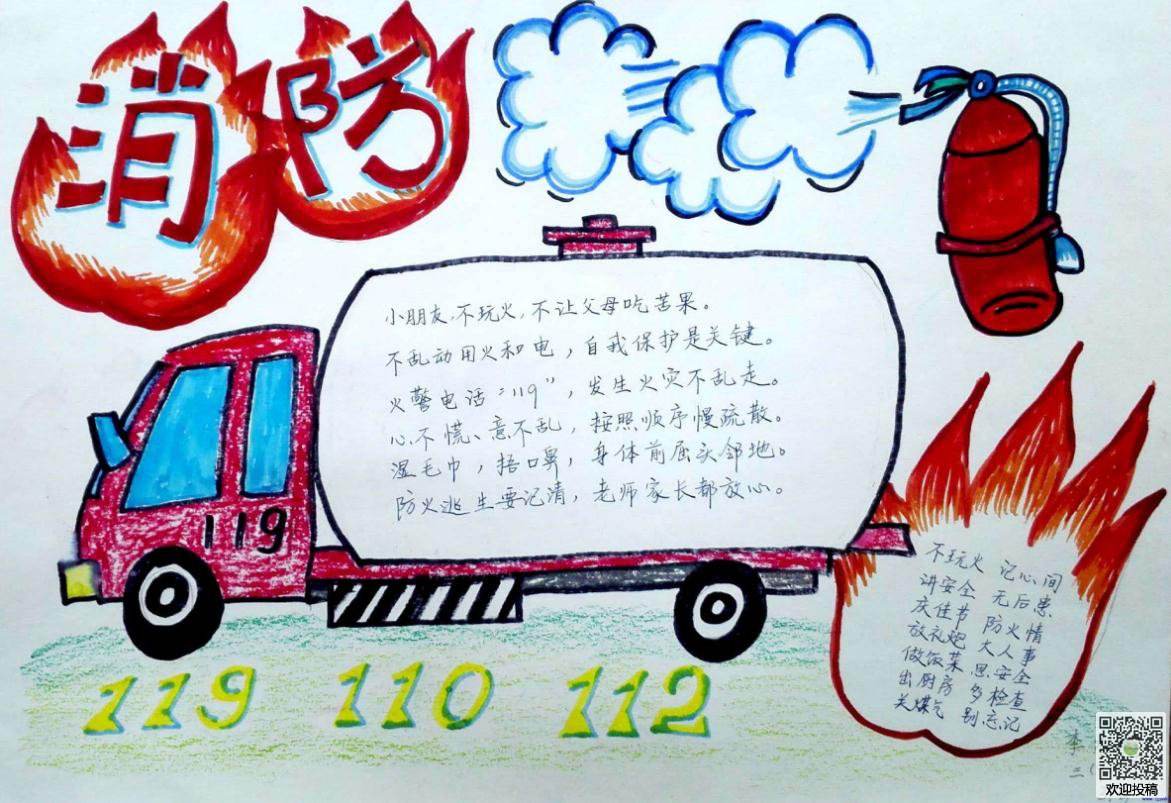 消防
小朋友,不玩火,不让父母吃苦果。
不乱动用火和电,自我保护是关键。
火警电话“119”,发生火灾不乱走。
心不慌、意不乱,按照顺序慢疏散。
湿毛巾,捂口鼻,身体前屈头邻地。
防火逃生要记清,老师家长都放心。
119
不玩火 记心间
讲安全 无后患
庆佳节 防火情
放礼炮 大人事
做饭菜 思安全
出厨房 多检查
关煤气 别忘记
119 110 112
李
三(
欢迎投稿